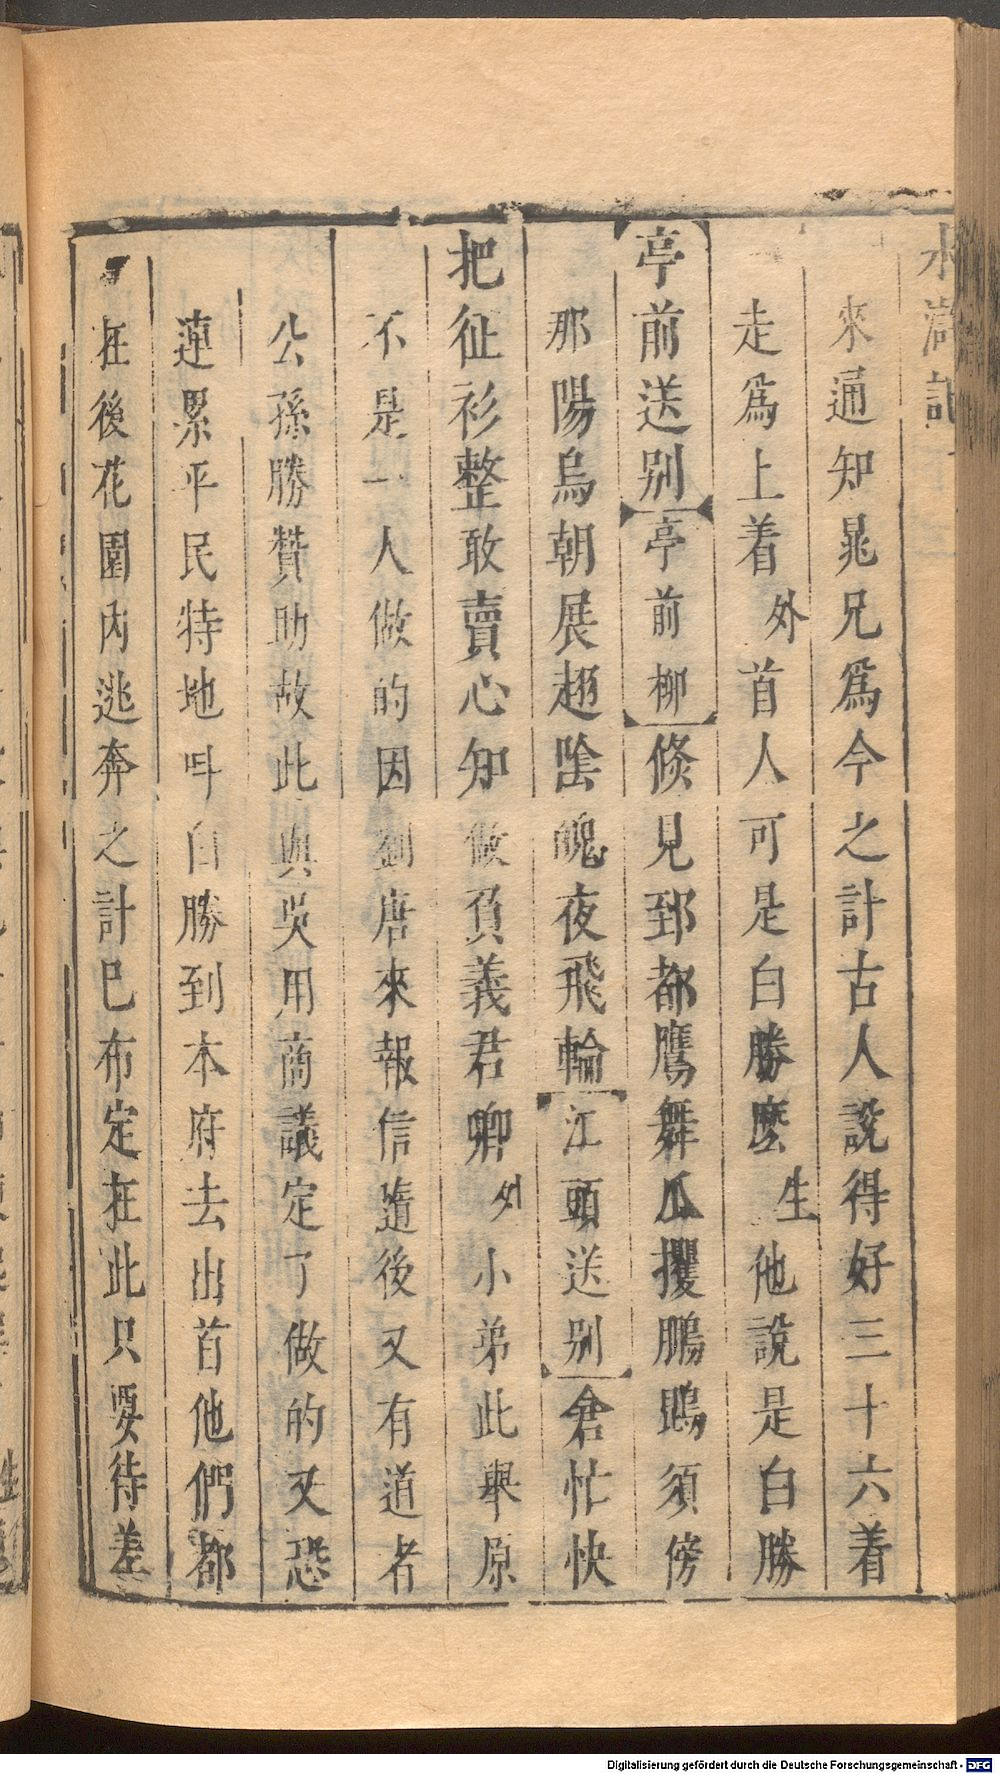 水滸記
來通知晁兄爲今之計古人說得好三十六着
走爲上着外首人可是白勝麽生他說是白勝
亭前送别亭前柳倏見郅都鷹舞瓜攫鵬鶚須傍
那陽烏朝展趐陰魄夜飛輪江頭送别倉忙快
把征衫整敢賣心知做負義君卿外小弟此舉原
不是一人做的因劉唐來報信隨後又有道者
公孫勝賛助故此與吳用商議定了做的又恐
連累平民特地呌白勝到本府去出首他們都
在後花園内逃奔之計巳布定在此只要待差
Digitalisierung gefördert durch die Deutsche Forschungsgemeinschaft - DFG